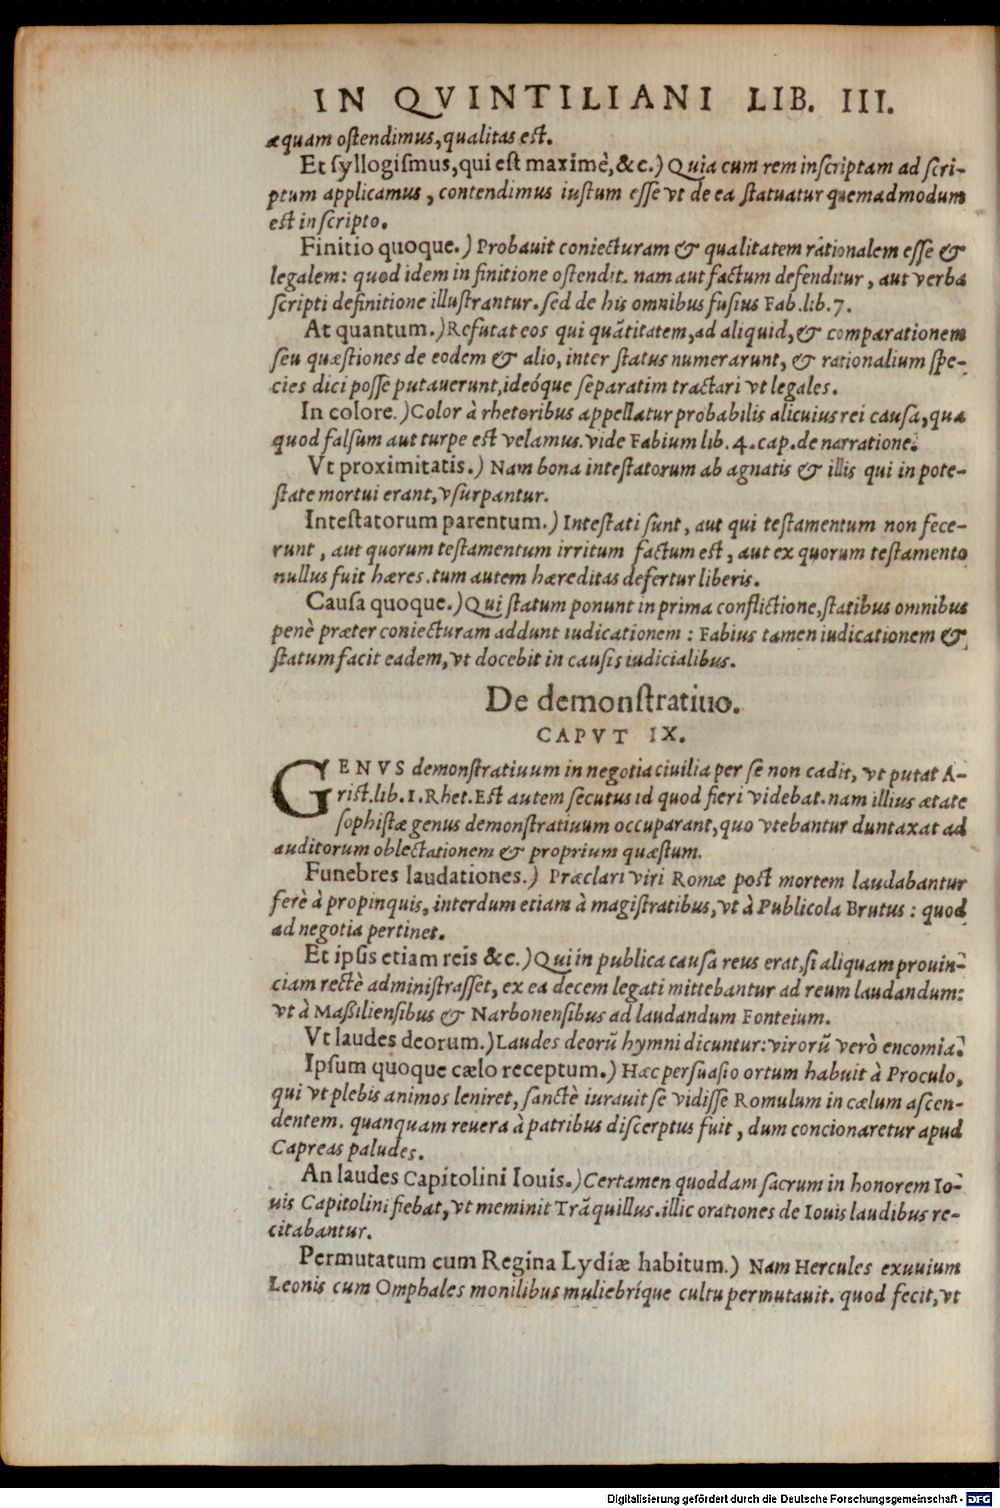 IN QVINTILIANI LIB. III.
æquam ostendimus, qualitas est.
Et syllogismus, qui est maximè, &c.) Quia cum rem inscriptam ad scri-
ptum applicamus, contendimus iustum esse vt de ea statuatur quemadmodum
est in scripto.
Finitio quoque.) Probauit coniecturam & qualitatem rationalem esse &
legalem: quod idem in finitione ostendit. nam aut factum defenditur, aut verba
scripti definitione illustrantur. sed de his omnibus fusius Fab. lib. 7.
At quantum.) Refutat eos qui quãtitatem, ad aliquid, & comparationem
seu quæstiones de eodem & alio, inter status numerarunt, & rationalium spe-
cies dici posse putauerunt, ideóque separatim tractari vt legales.
In colore.) Color à rhetoribus appellatur probabilis alicuius rei causa, qua
quod falsum aut turpe est velamus. vide Fabium lib. 4. cap. de narratione.
Vt proximitatis.) Nam bona intestatorum ab agnatis & illis qui in pote-
state mortui erant, vsurpantur.
Intestatorum parentum.) Intestati sunt, aut qui testamentum non fece-
runt, aut quorum testamentum irritum factum est, aut ex quorum testamento
nullus fuit hæres. tum autem hæreditas defertur liberis.
Causa quoque.) Qui statum ponunt in prima conflictione, statibus omnibus
penè præter coniecturam addunt iudicationem: Fabius tamen iudicationem &
statum facit eadem, vt docebit in causis iudicialibus.
De demonstratiuo.
CAPVT IX.
GENVS demonstratiuum in negotia ciuilia per se non cadit, vt putat A-
rist. lib. 1. Rhet. Est autem secutus id quod fieri videbat. nam illius ætate
sophistæ genus demonstratiuum occuparant, quo vtebantur duntaxat ad
auditorum oblectationem & proprium quæstum.
Funebres laudationes.) Præclari viri Romæ post mortem laudabantur
ferè à propinquis, interdum etiam à magistratibus, vt à Publicola Brutus: quod
ad negotia pertinet.
Et ipsis etiam reis &c.) Qui in publica causa reus erat, si aliquam prouin-
ciam rectè administrasset, ex ea decem legati mittebantur ad reum laudandum:
vt à Maßiliensibus & Narbonensibus ad laudandum Fonteium.
Vt laudes deorum.) Laudes deorũ hymni dicuntur: virorũ verò encomia.
Ipsum quoque cælo receptum.) Hæc persuasio ortum habuit à Proculo,
qui vt plebis animos leniret, sanctè iurauit se vidisse Romulum in cælum ascen-
dentem. quanquam reuera à patribus discerptus fuit, dum concionaretur apud
Capreas paludes.
An laudes Capitolini Iouis.) Certamen quoddam sacrum in honorem Io-
uis Capitolini fiebat, vt meminit Trãquillus. illic orationes de Iouis laudibus re-
citabantur.
Permutatum cum Regina Lydiæ habitum.) Nam Hercules exuuium
Leonis cum Omphales monilibus muliebríque cultu permutauit. quod fecit, vt
Digitalisierung gefördert durch die Deutsche Forschungsgemeinschaft - DFG